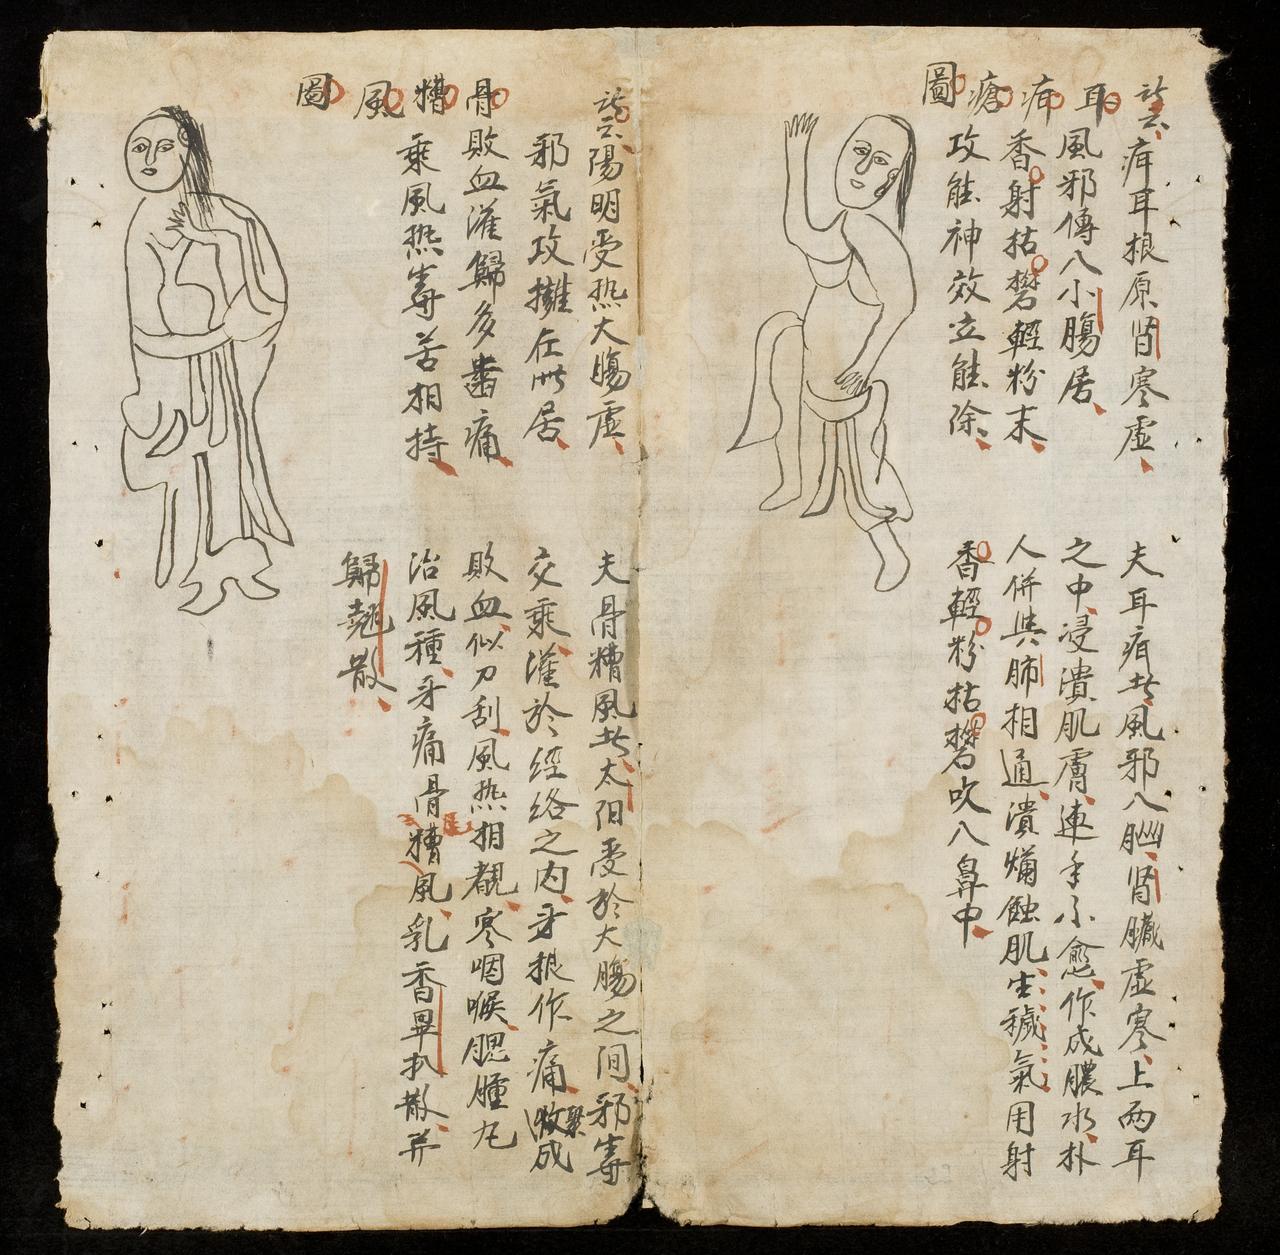 訣云疳耳根原肾寒虛
耳風邪傳入小腸居
疳香射枯礬輕粉末
瘡攻能神效立能除
圖
夫耳疳者風邪入腦肾臟虛寒上兩耳
之中浸潰肌膚連年不愈作成膿水朴
人併與肺相通潰爛蝕肌生穢氣用射
香輕粉枯礬吹入鼻中
訣云陽明受热大腸虛
邪氣攻擁在此居
骨敗血灌歸多齒痛
糟乘風热毒苦相持
風
圖
夫骨糟風者太阳受於大腸之间邪毒
交乘灌於經絡之内牙根作痛聚成
敗血似刀刮風热相覩寒咽喉腮腫九
治風種牙痛骨糟風乳香畢扒散并
歸翹散